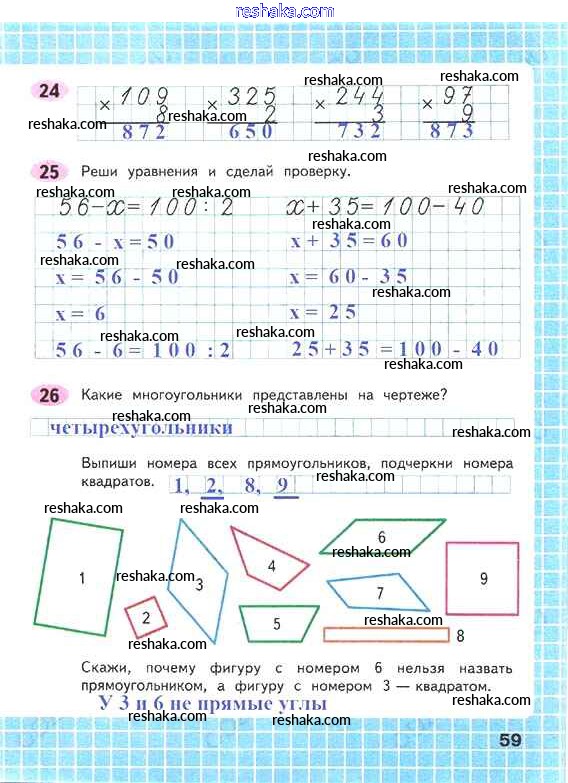 reshaka.com
24
109 325 244 97
× 8 × 2 × 3 × 9
872 650 732 873
reshaka.com reshaka.com reshaka.com reshaka.com reshaka.com
25 Реши уравнения и сделай проверку.
reshaka.com reshaka.com reshaka.com
56-x=100:2 x+35=100-40
reshaka.com
56 - x = 50 x + 35 = 60
reshaka.com reshaka.com
x = 56 - 50 x = 60 - 35
reshaka.com
x = 6 x = 25
reshaka.com reshaka.com
56 - 6 = 100 : 2 25+35 = 100 - 40
26 Какие многоугольники представлены на чертеже?
reshaka.com reshaka.com
четырехугольники
reshaka.com
Выпиши номера всех прямоугольников, подчеркни номера
квадратов. 1, 2, 8, 9
reshaka.com
reshaka.com reshaka.com
6
reshaka.com
4 9
1 3 7
reshaka.com
2 5
reshaka.com
8
reshaka.com
Скажи, почему фигуру с номером 6 нельзя назвать
прямоугольником, а фигуру с номером 3 — квадратом.
reshaka.com reshaka.com
У 3 и 6 не прямые углы
reshaka.com
59
reshaka.com